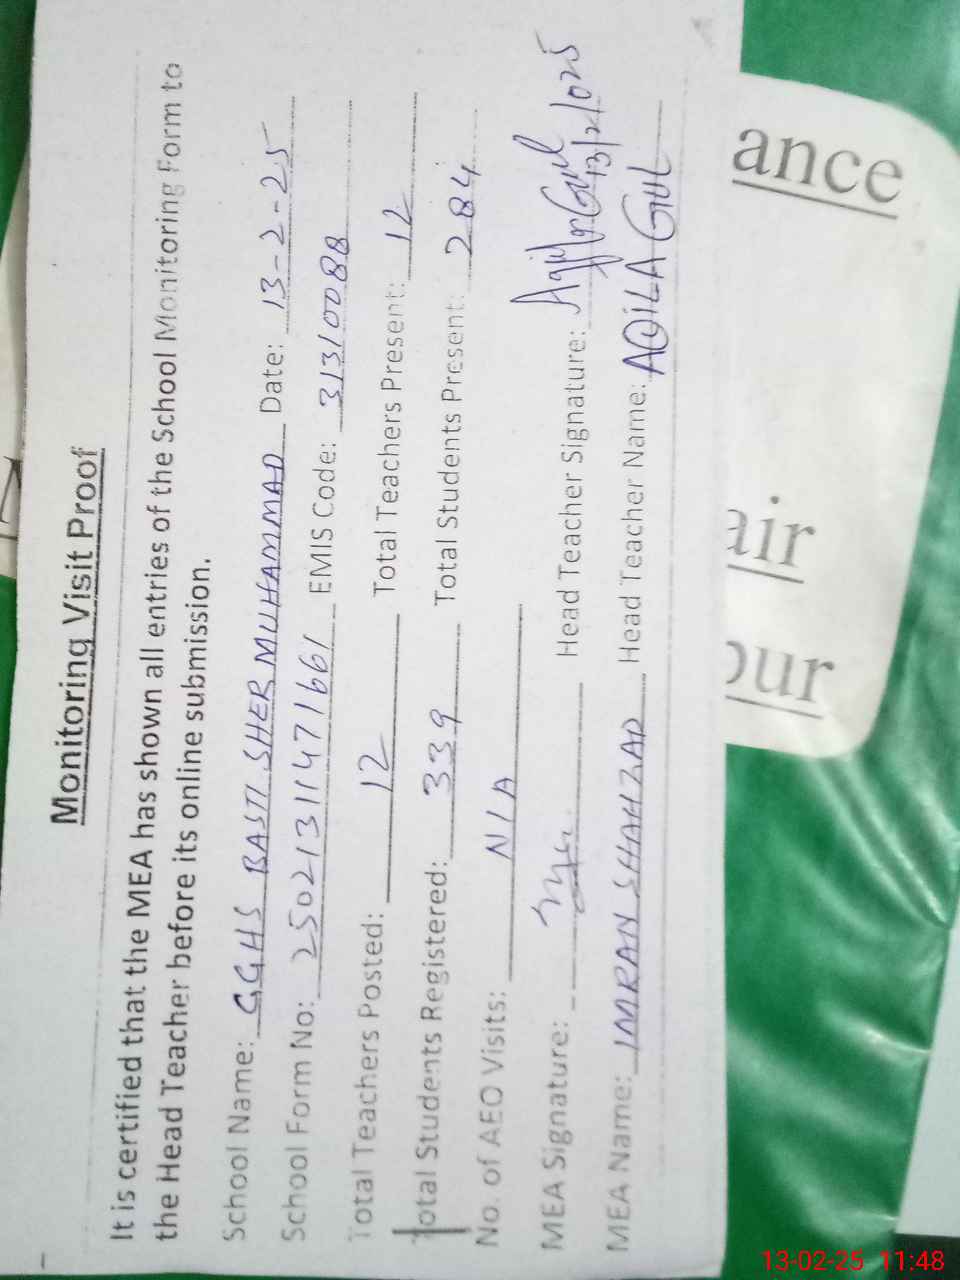 Monitoring Visit Proof
It is certified that the MEA has shown all entries of the School Monitoring Form to
the Head Teacher before its online submission.
School Name: GGHS BASTI SHER MUHAMMAD Date: 13-2-25
School Form No: 2502131147 1661 EMIS Code: 31310088
Total Teachers Posted: 12 Total Teachers Present: 12
Total Students Registered: 339 Total Students Present: 284
No. of AEO Visits: N/A
MEA Signature: Head Teacher Signature: Aqila Gul 13/2/025
MEA Name: IMRAN SHAHZAD Head Teacher Name: AQILA GUL
ance
air
our
13-02-25 11:48